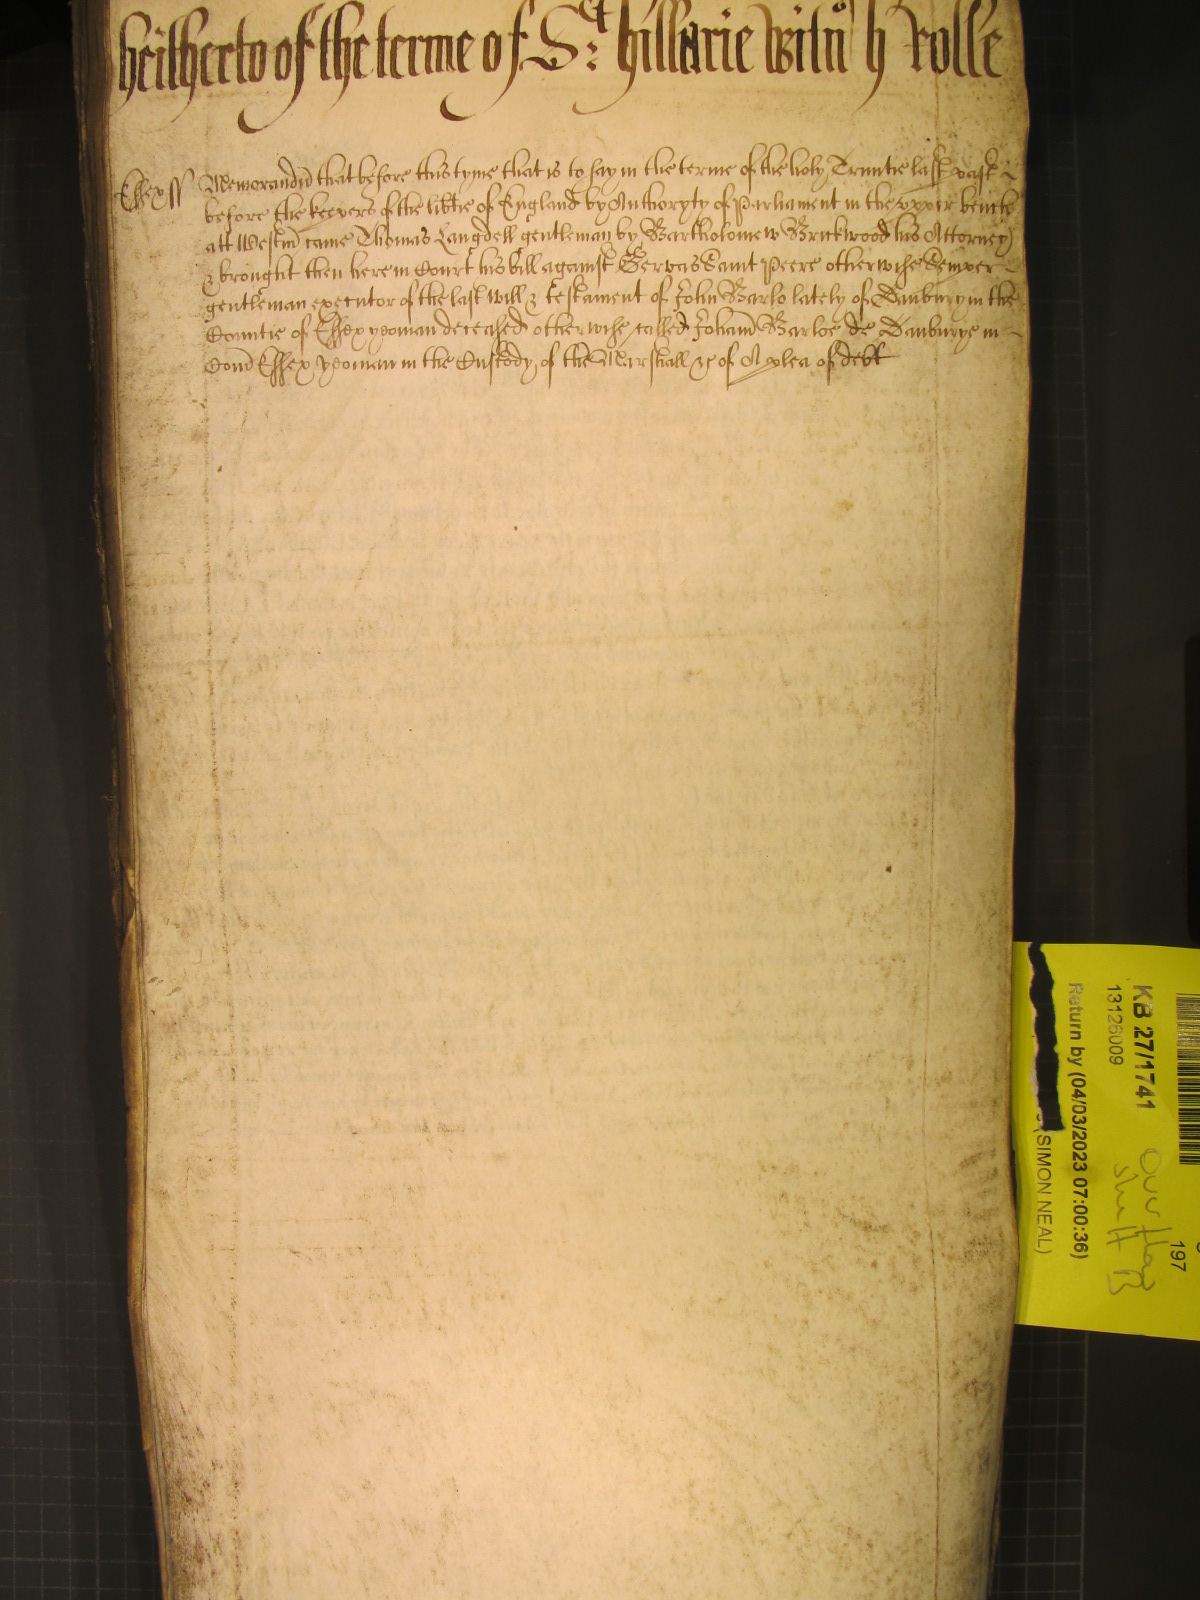 heitherto of the terme of St: hillarie Witn h Rolle
Essex ss Memorand that before this tyme that is to say in the terme of the holy Trinitie last past
before the keepers of the libtie of England by Authoryty of Parliament in the upper bench
att Westm came Thomas Langdell gentleman by Bartholomew Brickwood his Attorney
& brought then here in Court his bill against Gervas Saint Peere otherwise Semper
gentleman executor of the last will & testament of John Barlo lately of Danbury in the
Countie of Essex yeoman deceased otherwise called Johann Barloe de Danburye in
Com Essex yeoman in the Custody of the Marshall &c of A plea of debt
KB 27/1741
13126009
Return by (04/03/2023 07:00:36)
(SIMON NEAL)
197